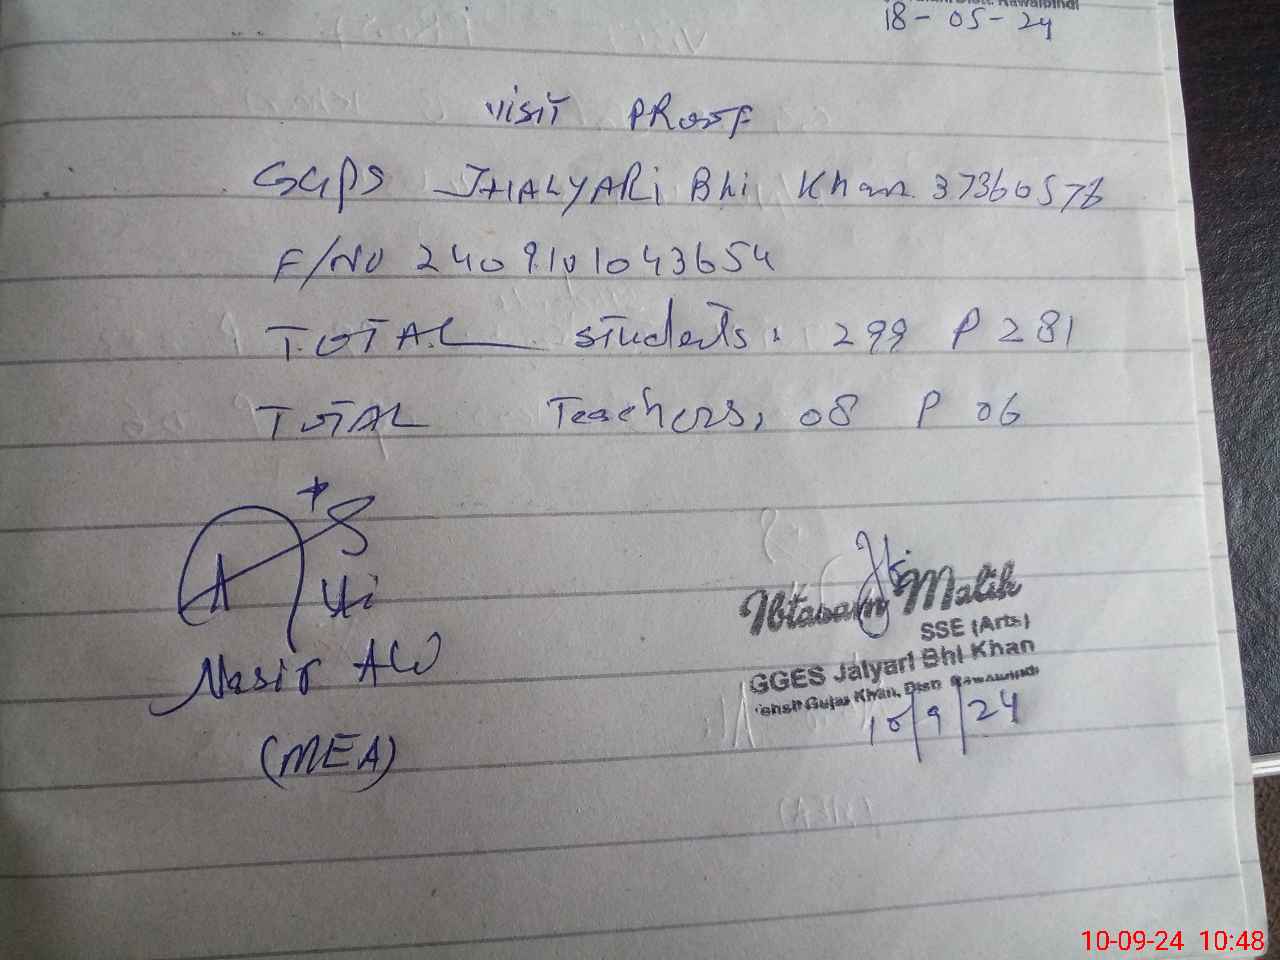 Rawalpindi
18-05-24
Visit PRooF
GGPS JHALYARi Bhi Khan 37360576
F/No 2409101043654
TOTAL students: 299 P 281
TOTAL Teachers, 08 P 06
Nasir Ali
(MEA)
Ibtasam Malik
SSE (Arts)
GGES Jalyari Bhi Khan
Tehsil Gujar Khan, Distt Rawalpindi
10/9/24
10-09-24 10:48